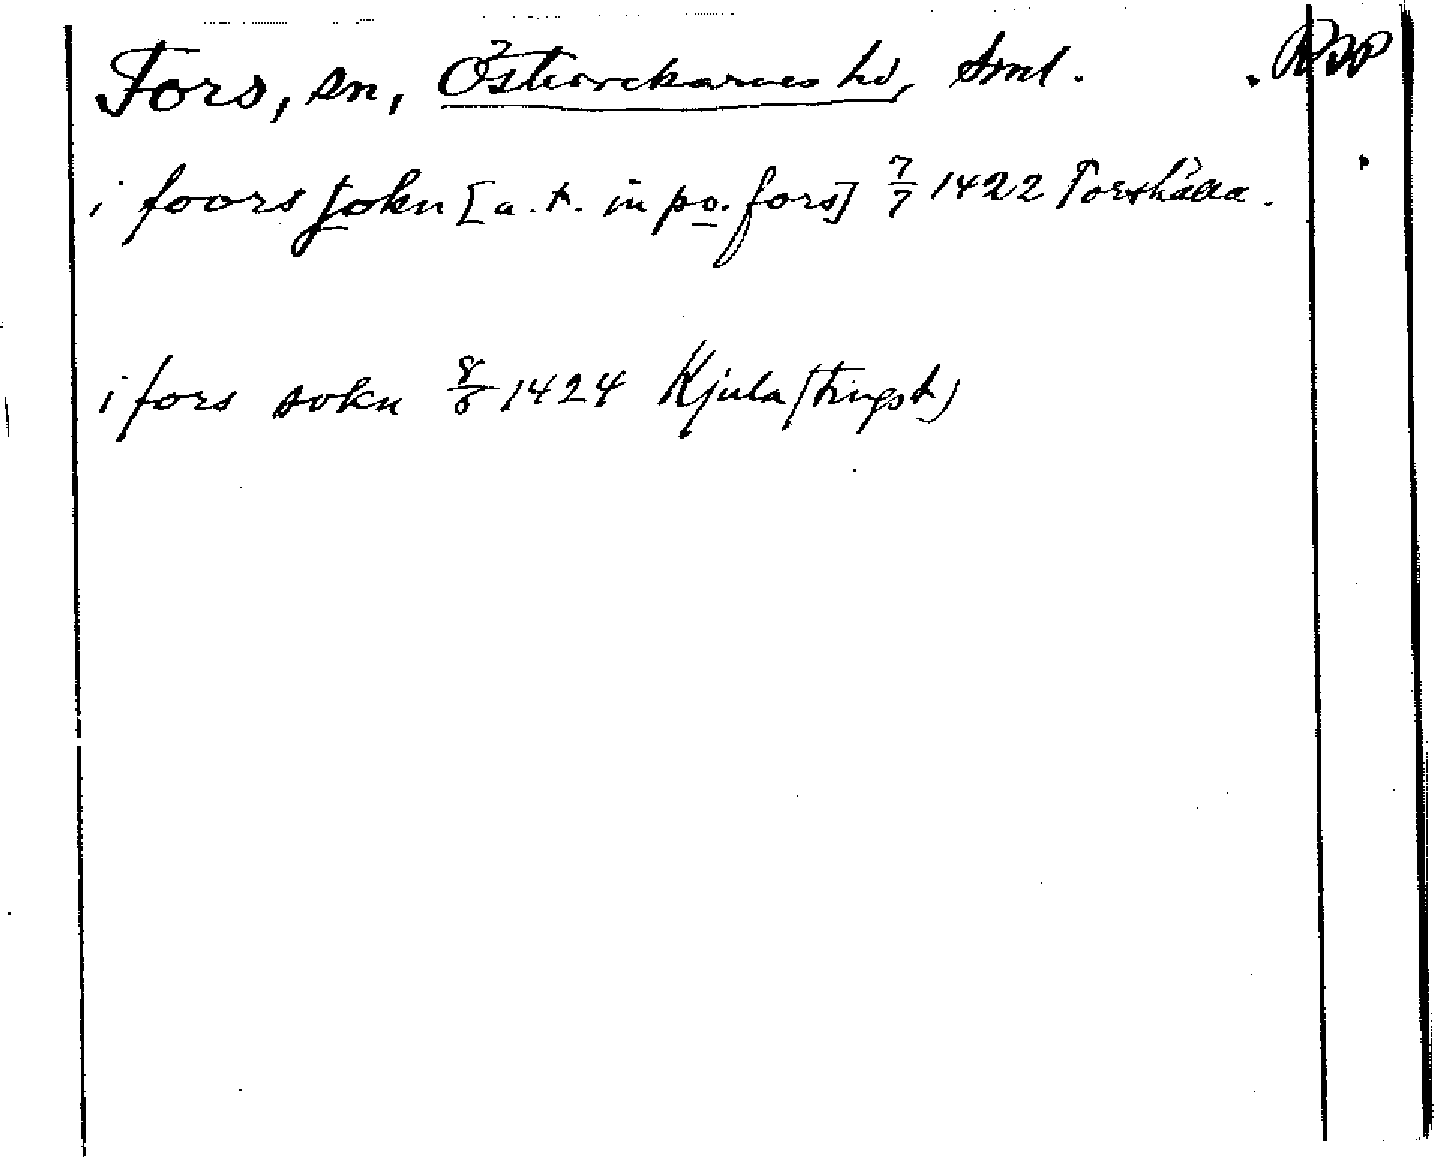 Fors, sn, Österrekarnes hd, Sml. RAP
i foors sokn [a.t. in po. fors] 7/7 1422 Torshälla.
i fors sokn 8/6 1424 Kjula (tingst)